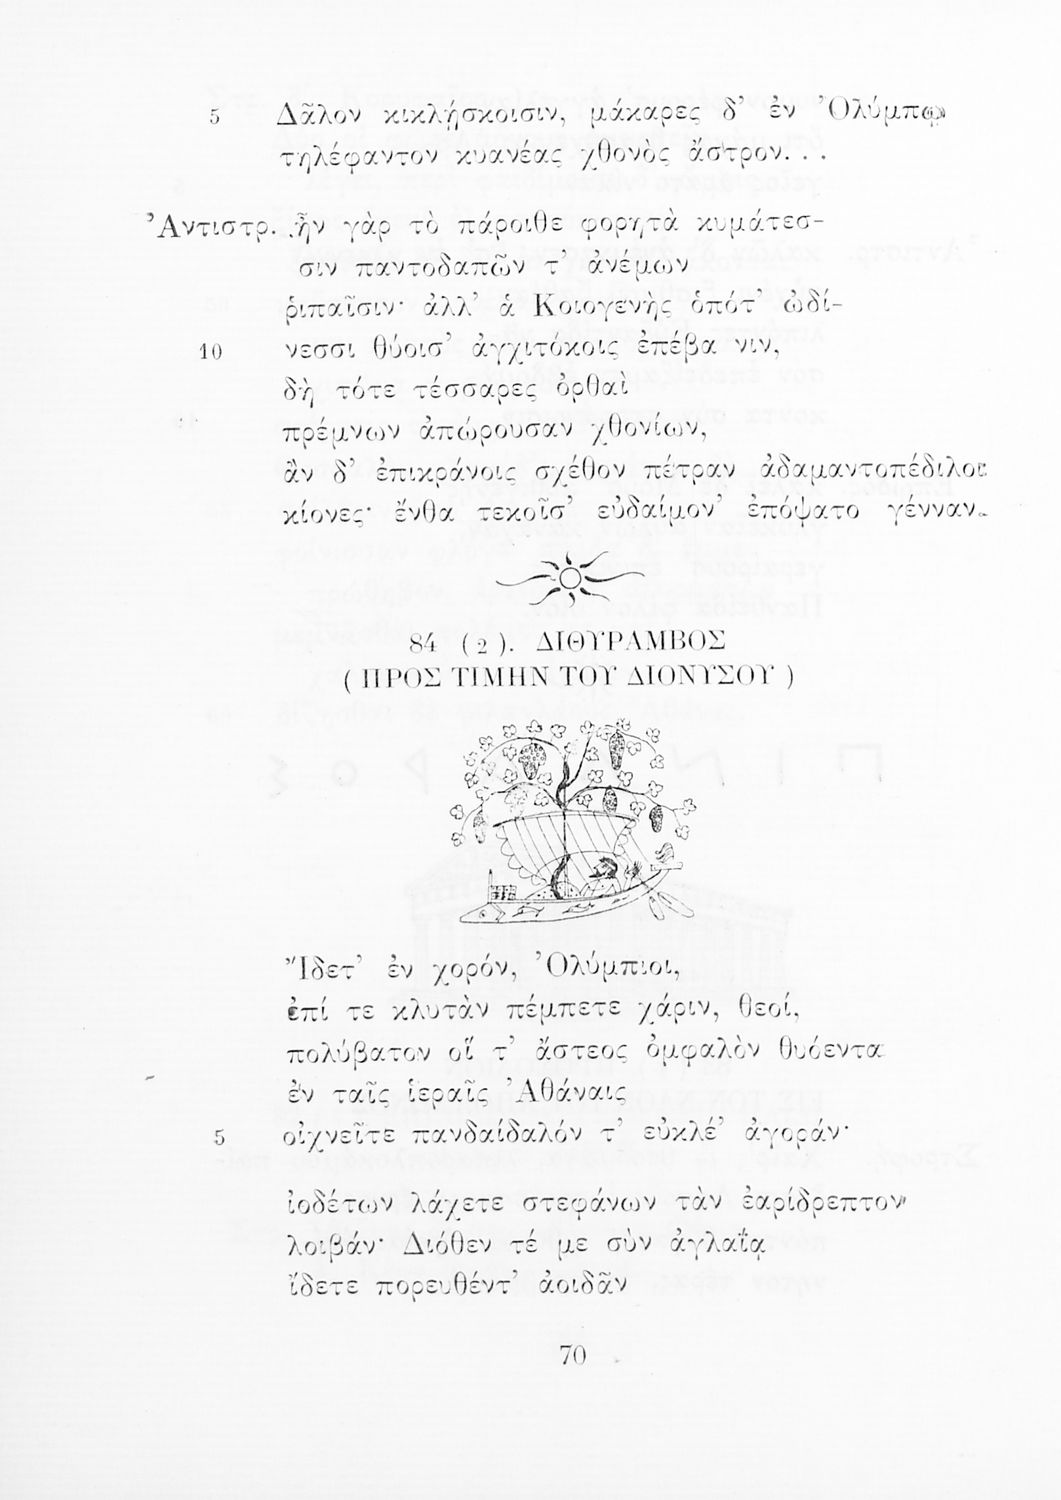 5 Δᾶλον κικλήσκοισιν, μάκαρες δ’ ἐν Ὀλύμπῳ
τηλέφαντον κυανέας χθονὸς ἄστρον. . .
Ἀντιστρ. ἦν γὰρ τὸ πάροιθε φορητὰ κυμάτεσ-
σιν παντοδαπῶν τ’ ἀνέμων
ῥιπαῖσιν· ἀλλ’ ἁ Κοιογενὴς ὁπότ’ ὠδί-
10 νεσσι θύοισ’ ἀγχιτόκοις ἐπέβα νιν,
δὴ τότε τέσσαρες ὀρθαὶ
πρέμνων ἀπώρουσαν χθονίων,
ἂν δ’ ἐπικράνοις σχέθον πέτραν ἀδαμαντοπέδιλοι
κίονες· ἔνθα τεκοῖσ’ εὐδαίμον’ ἐπόψατο γένναν.
84 (2). ΔΙΘΥΡΑΜΒΟΣ
(ΠΡΟΣ ΤΙΜΗΝ ΤΟΥ ΔΙΟΝΥΣΟΥ)
Ἴδετ’ ἐν χορόν, Ὀλύμπιοι,
ἐπί τε κλυτὰν πέμπετε χάριν, θεοί,
πολύβατον οἵ τ’ ἄστεος ὀμφαλὸν θυόεντα
ἐν ταῖς ἱεραῖς Ἀθάναις
5 οἰχνεῖτε πανδαίδαλόν τ’ εὐκλέ’ ἀγοράν·
ἰοδέτων λάχετε στεφάνων τὰν ἐαρίδρεπτον
λοιβάν· Διόθεν τέ με σὺν ἀγλαΐᾳ
ἴδετε πορευθέντ’ ἀοιδᾶν
70